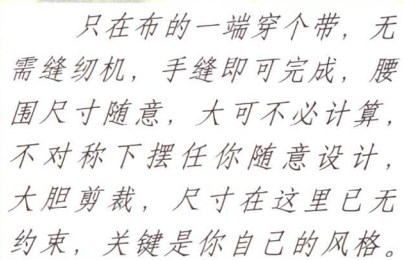 只在布的一端穿个带，无
需缝纫机，手缝即可完成，腰
围尺寸随意，大可不必计算，
不对称下摆任你随意设计，
大胆剪裁，尺寸在这里已无
约束，关键是你自己的风格。